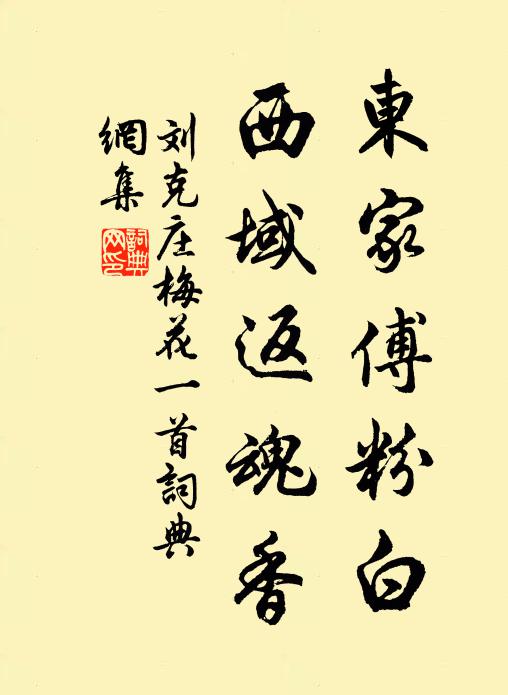 東家傅粉白
西域返魂香
刘克庄梅花一首詞典
網集
詞典网印